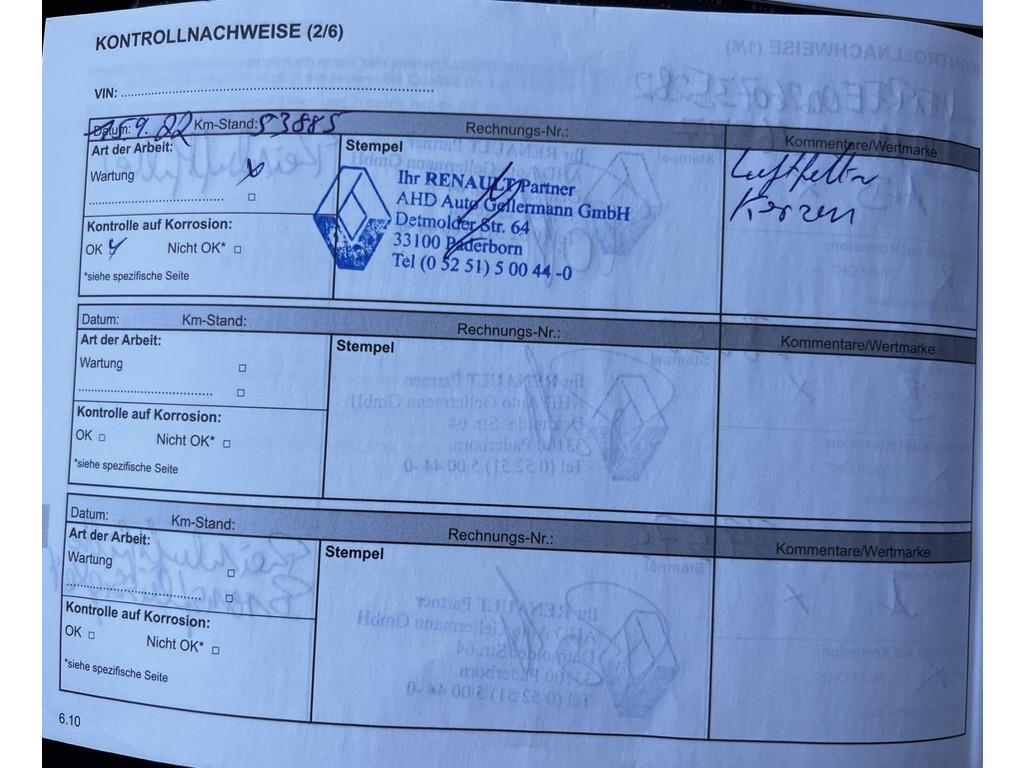 KONTROLLNACHWEISE (2/6)
VIN: ........................................................................
Datum: 9.22 Km-Stand: 53885 Rechnungs-Nr.: Kommentare/Wertmarke
Art der Arbeit:
Wartung
Kontrolle auf Korrosion:
OK Nicht OK*
*siehe spezifische Seite
Stempel
Ihr RENAULT Partner
AHD Auto Gellermann GmbH
Detmolder Str. 64
33100 Paderborn
Tel (0 52 51) 5 00 44 -0
Luftfilter
Kerzen
Datum: Km-Stand: Rechnungs-Nr.: Kommentare/Wertmarke
Art der Arbeit:
Wartung
Kontrolle auf Korrosion:
OK Nicht OK*
*siehe spezifische Seite
Stempel
Datum: Km-Stand: Rechnungs-Nr.: Kommentare/Wertmarke
Art der Arbeit:
Wartung
Kontrolle auf Korrosion:
OK Nicht OK*
*siehe spezifische Seite
Stempel
6.10